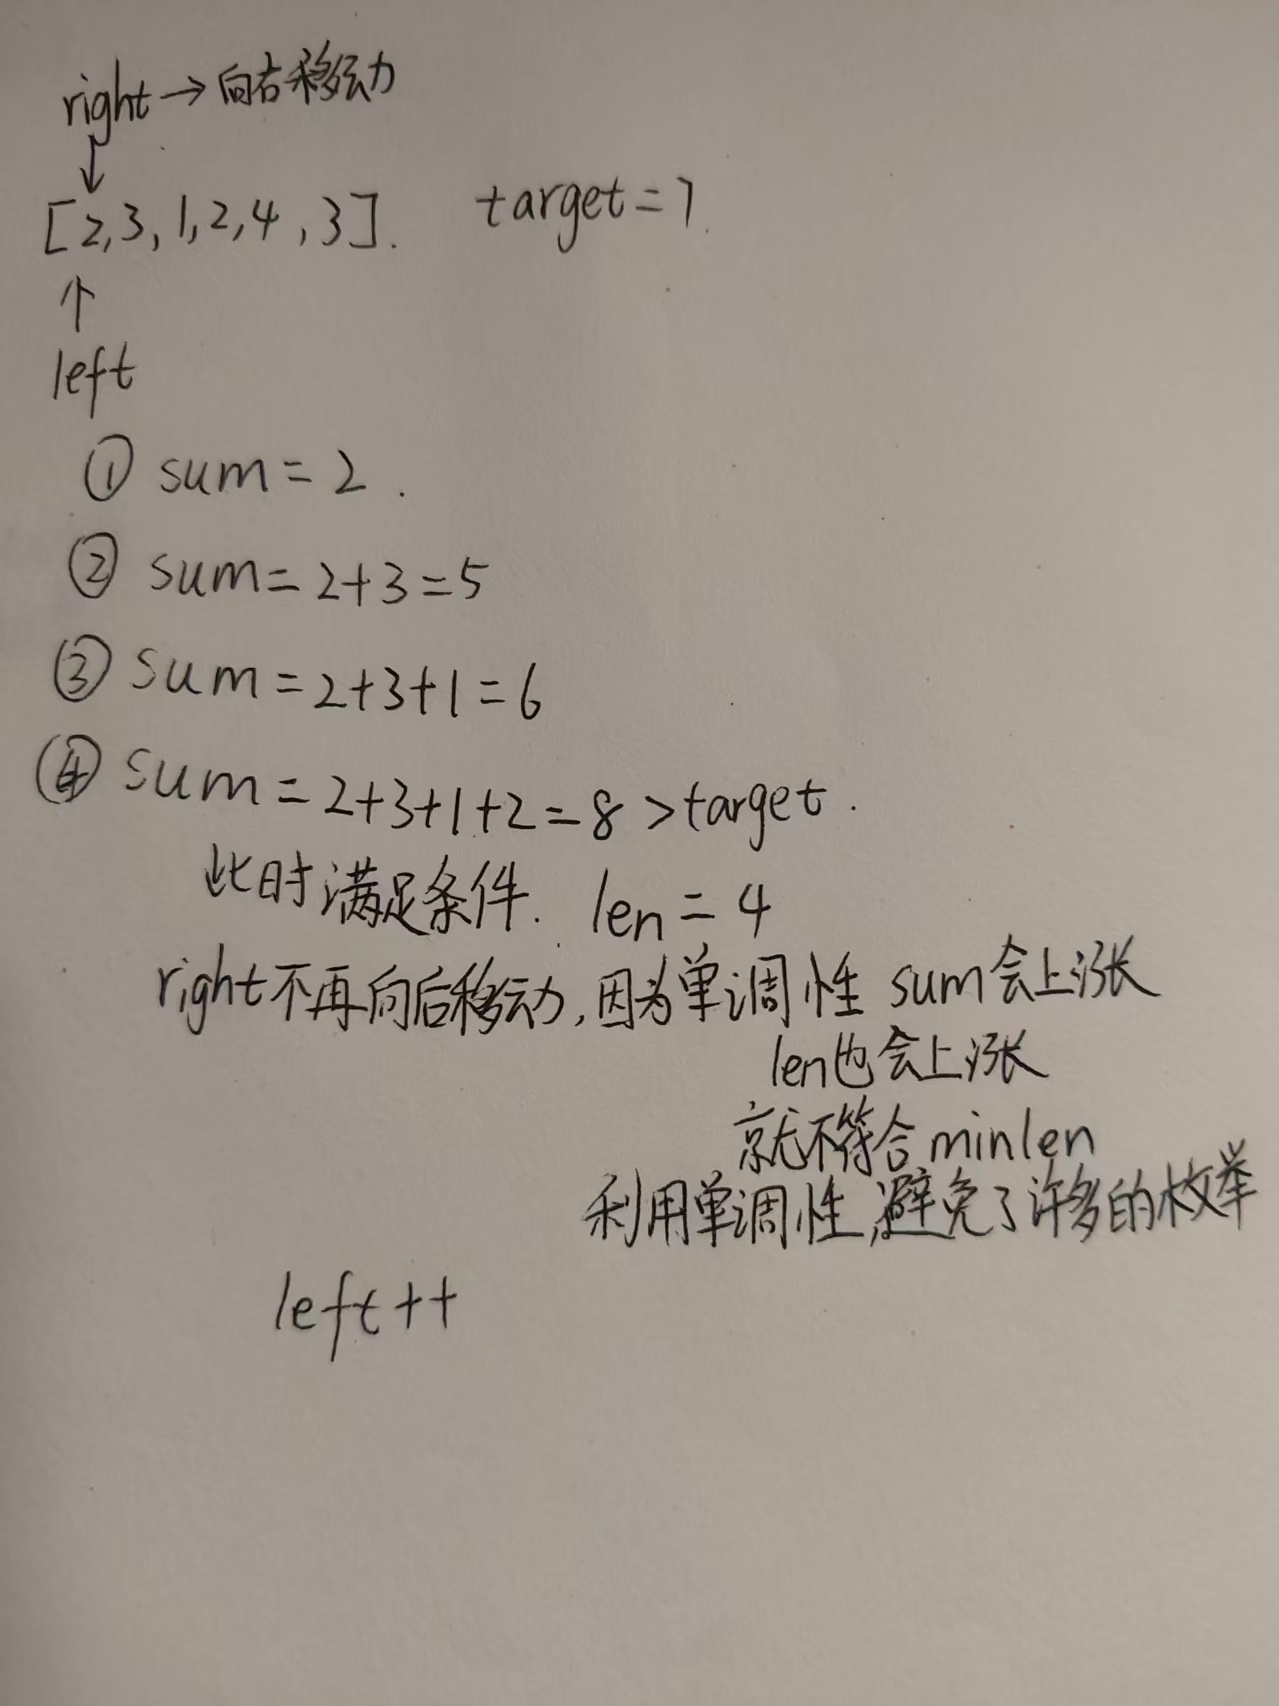 right → 向右移动
↓
[2,3,1,2,4,3]. target=7.
↑
left
① sum=2.
② sum=2+3=5
③ sum=2+3+1=6
④ sum=2+3+1+2=8>target.
此时满足条件. len=4
right不再向后移动,因为单调性 sum会上涨
len也会上涨
就不符合minlen
利用单调性,避免了许多的枚举
left++